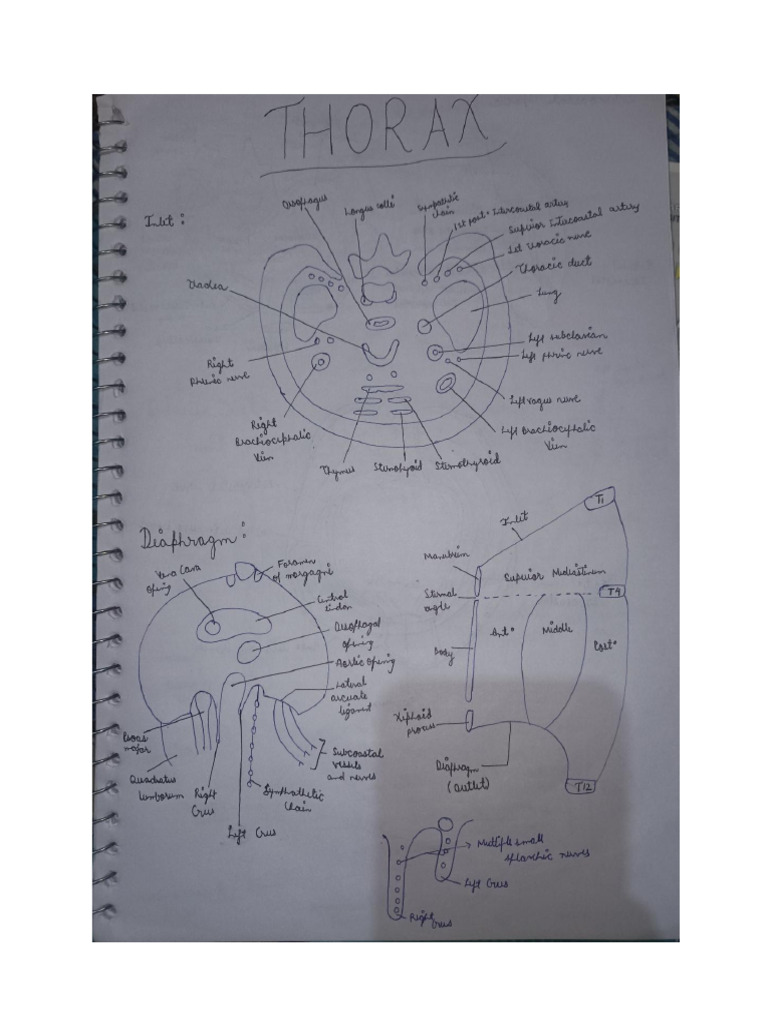 THORAX
Inlet :
Oesophagus
Longus colli
Sympathetic
chain
1st post° Intercostal artery
Superior Intercostal artery
1st thoracic nerve
Thoracic duct
Lung
Trachea
Left subclavian
Left phrenic nerve
Right
Phrenic nerve
Left vagus nerve
Right
Brachiocephalic
Vein
Left Brachiocephalic
Vein
Thymus
Sternohyoid
Sternothyroid
Diaphragm :
Vena Cava
opening
Foramen
of morgagni
Central
tendon
Oesophageal
opening
Aortic opening
Lateral
arcuate
ligament
Psoas
major
Quadratus
lumborum
Right
Crus
Left Crus
Symphathetic
chain
Subcoastal
vessels
and nerves
Inlet
T1
Manubrium
Superior Mediastinum
Sternal
angle
T4
Ant°
Middle
Post°
Body
Xiphoid
process
Diaphragm
(outlet)
T12
Multiple small
splanchic nerves
Left Crus
Right
Crus